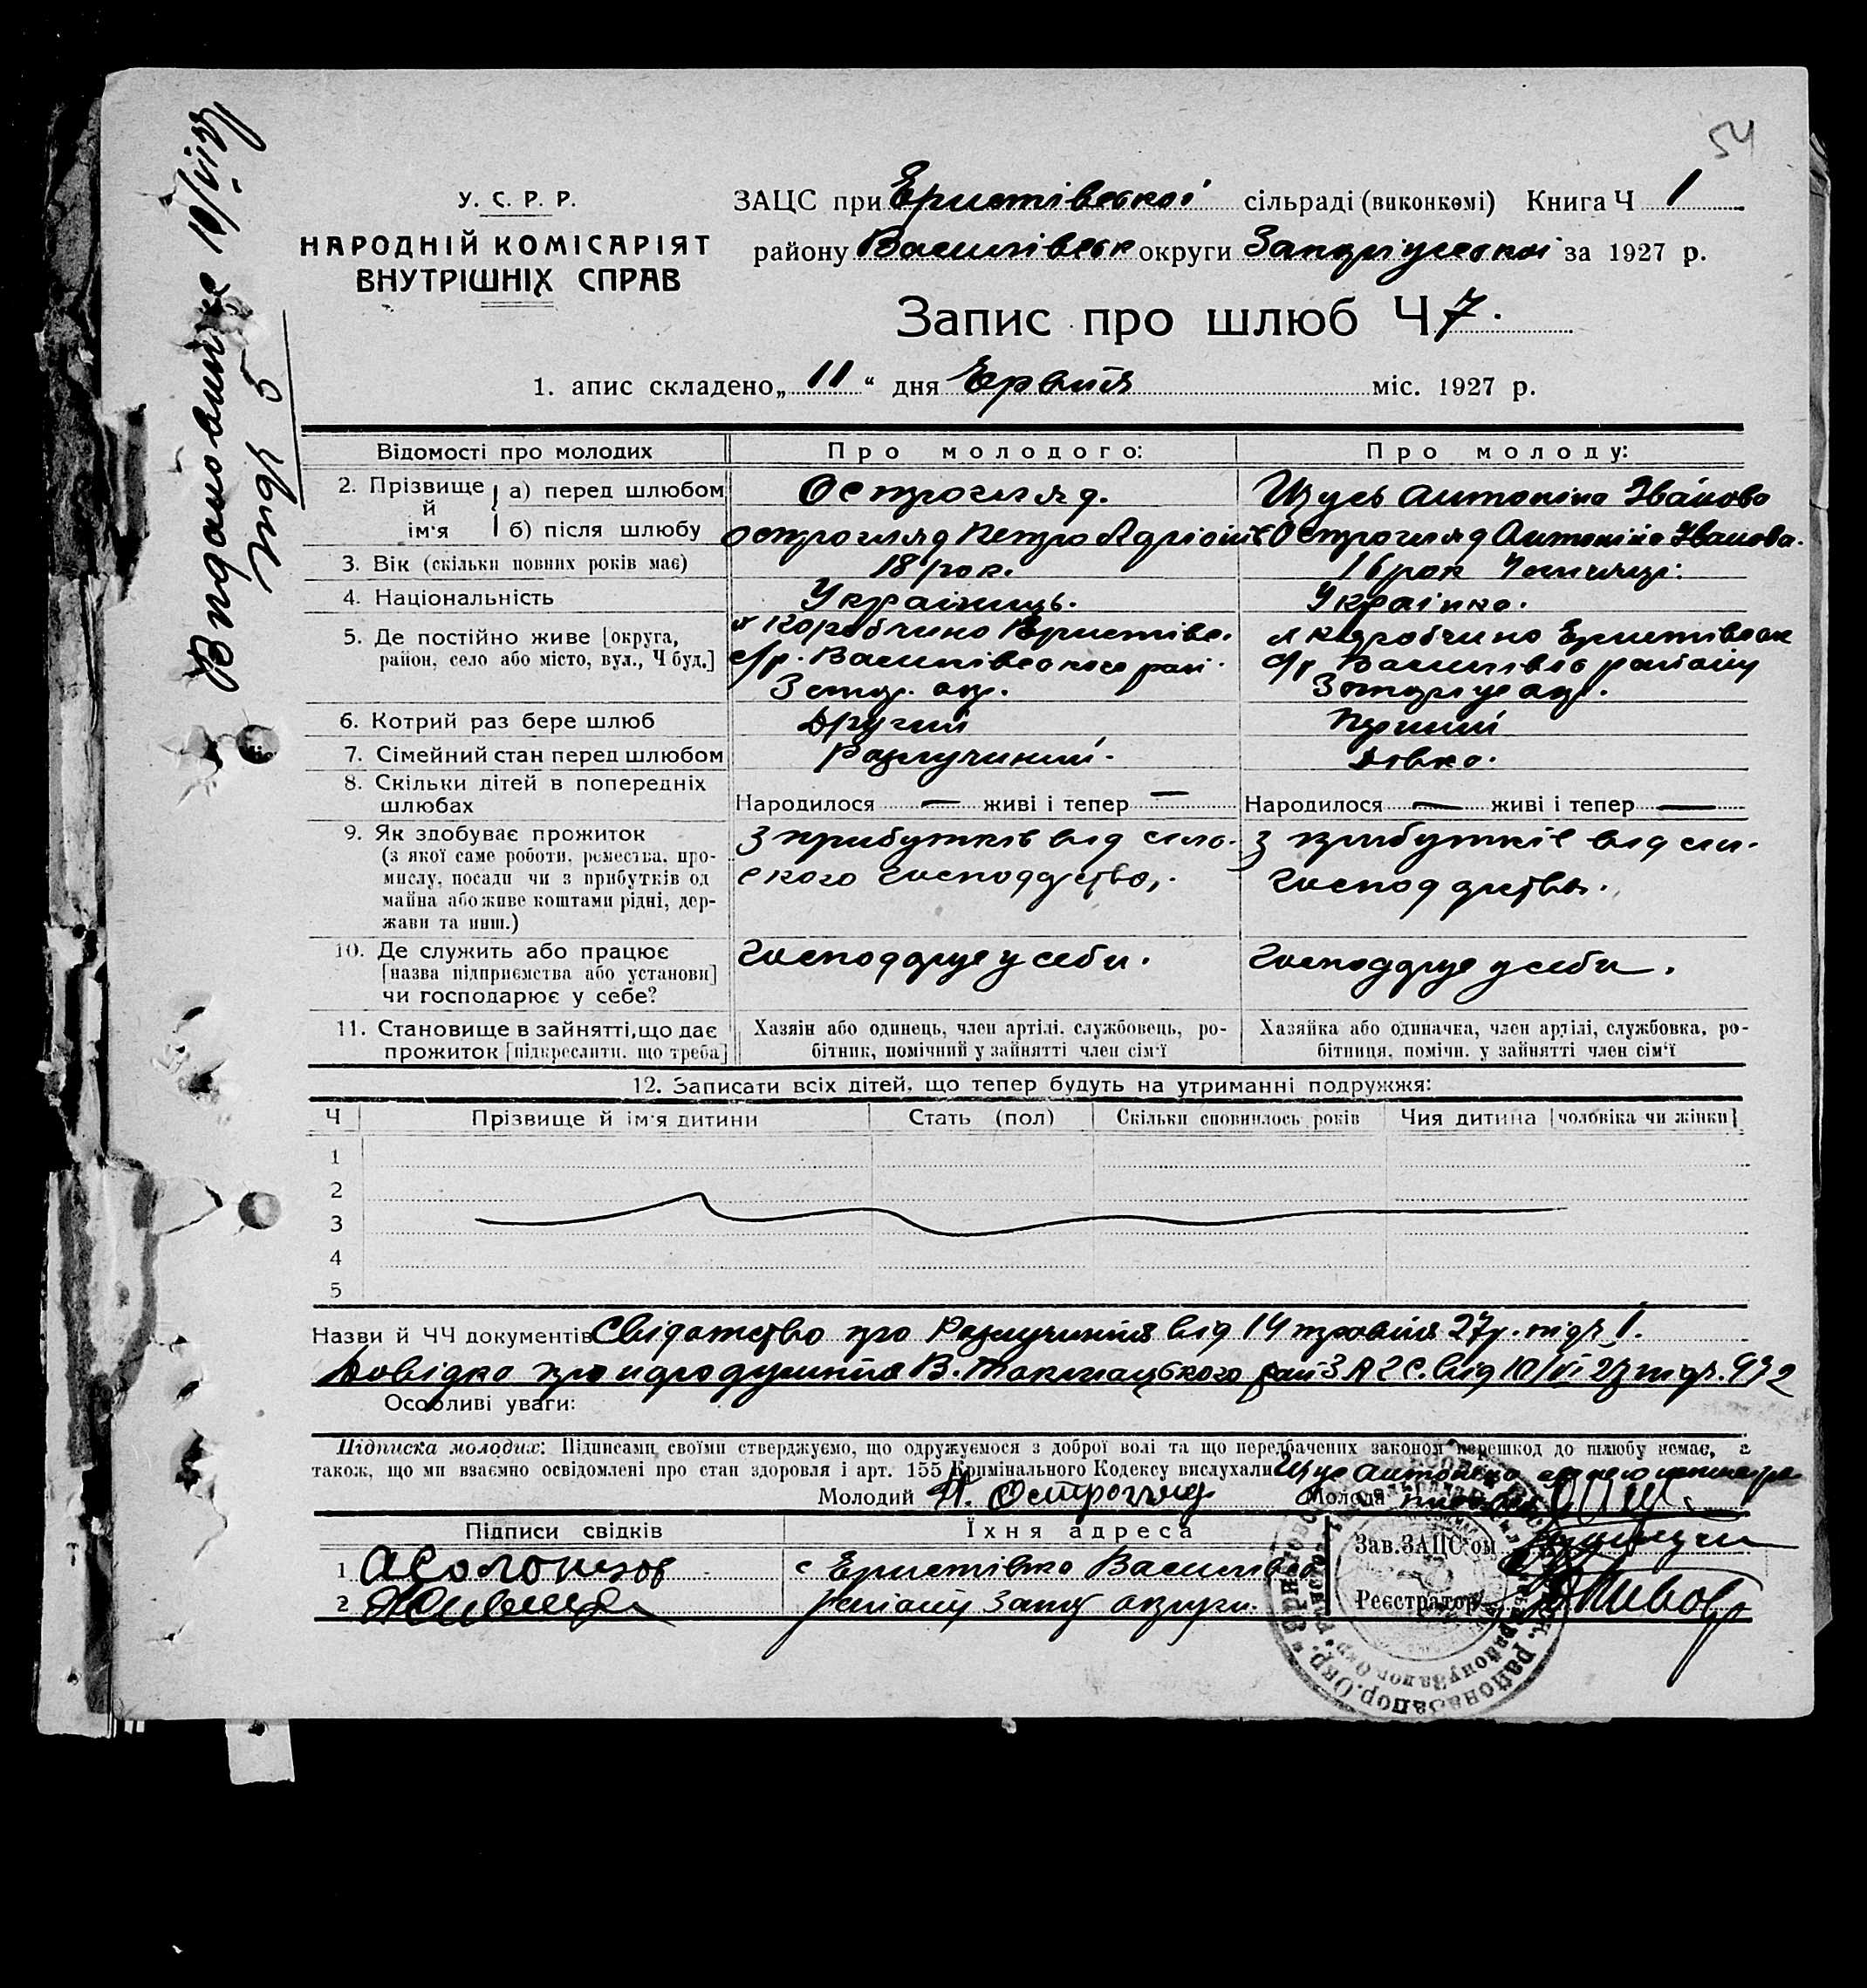 54
У. С. Р. Р.
НАРОДНІЙ КОМІСАРІЯТ
ВНУТРІШНІХ СПРАВ
ЗАЦС при Еристівской сільраді (виконкомі) Книга Ч 1
району Василівськ округи Запоріжской за 1927 р.
Запис про шлюб Ч 7.
1. апис складено „ 11 “ дня міс. 1927 р.
Відомості про молодих
Про молодого:
Про молоду:
2. Прізвище й ім'я
а) перед шлюбом
Острогляд.
Антоніна Іванова
б) після шлюбу
Острогляд Петро
Острогляд Антоніна Іванова.
3. Вік (скільки повних років має)
18 рок.
16 рок
4. Національність
Українець.
Українка.
5. Де постійно живе [округа,
район, село або місто, вул., Ч буд.]
х Коробчино Еристівс.
с/р. Василівського рай.
Запор. окр.
х Коробчино Еристівськ
с/р Василівсь району
окр.
6. Котрий раз бере шлюб
Другий
Перший
7. Сімейний стан перед шлюбом
Разлучиний.
Дівка.
8. Скільки дітей в попередніх
шлюбах
Народилося — живі і тепер —
Народилося — живі і тепер —
9. Як здобуває прожиток
(з якої саме роботи, ремества, про-
мислу, посади чи з прибутків од
майна або живе коштами рідні, дер-
жави та инш.)
З прибутків від сель-
ского господарства.
З прибутків від
господарства.
10. Де служить або працює
[назва підприємства або установи]
чи господарює у себе?
Господарує у себи.
Господарує у себи.
11. Становище в зайнятті, що дає
прожиток [підкреслити, що треба]
Хазяін або одинець, член артілі, службовець, ро-
бітник, помічний у зайнятті член сім'ї
Хазяйка або одиначка, член артілі, службовка, ро-
бітниця, помічн. у зайнятті член сім'ї
12. Записати всіх дітей, що тепер будуть на утриманні подружжя:
Ч
Прізвище й ім'я дитини
Стать (пол)
Скільки сповнилось років
Чия дитина [чоловіка чи жінки]
1
2
3
4
5
Назви й ЧЧ документів Свідотство про Разлучиния від 14 травня 27 р. під ч 1.
Довідка про В. Токмацького рай ЗАГС. від 10/VI 27 під ч. 472
Особливі уваги:
Підписка молодих: Підписами своїми стверджуємо, що одружуємося з доброї волі та що передбачених законом перешкод до шлюбу немає, а
також, що ми взаємно освідомлені про стан здоровля і арт. 155 Кримінального Кодексу вислухали
Антоніна
Молодий П. Остргляд Молода
Підписи свідків
Їхня адреса
Зав. ЗАЦС'ом
1
с Еристівка Василівс
2
району Запор округи.
Реєстратор